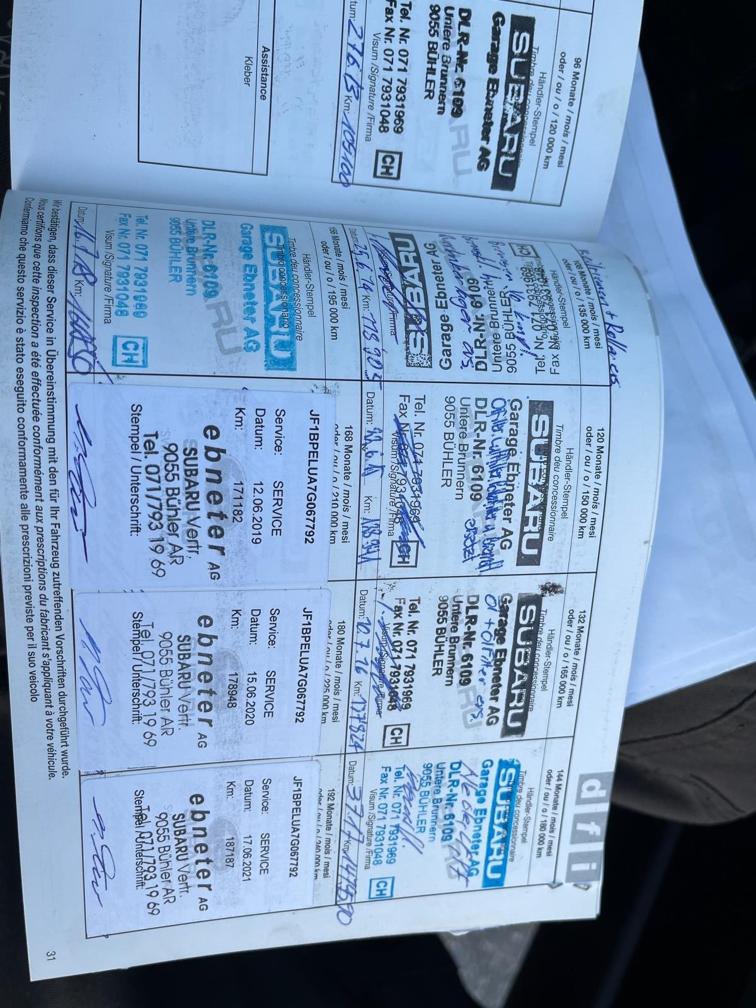 96 Monate / mois / mesi
oder / ou / o / 120 000 km
Händler-Stempel
Timbre deu concessionnaire
SUBARU
Garage Ebneter AG
DLR-Nr. 6109
Untere Brunnern
9055 BÜHLER
Tel. Nr. 071 7931969
Fax Nr. 071 7931048
CH
Visum /Signature /Firma
27.6.13 Km: 105100
Assistance
Kleber
108 Monate / mois / mesi
oder / ou / o / 135 000 km
Händler-Stempel
SUBARU
Garage Ebneter AG
DLR-Nr. 6109
Untere Brunnern
9055 BÜHLER
Tel. Nr. 071
Fax Nr. 071
25.6.14 Km:
120 Monate / mois / mesi
oder / ou / o / 150 000 km
Händler-Stempel
Timbre deu concessionnaire
SUBARU
Garage Ebneter AG
DLR-Nr. 6109
Untere Brunnern
9055 BÜHLER
Tel. Nr. 071 7931969
Fax Nr. 071 7931048
CH
Visum /Signature /Firma
Datum: Km:
132 Monate / mois / mesi
oder / ou / o / 165 000 km
Händler-Stempel
Timbre deu concessionnaire
SUBARU
Garage Ebneter AG
Öl + Ölfilter ers.
DLR-Nr. 6109
Untere Brunnern
9055 BÜHLER
Tel. Nr. 071 7931969
Fax Nr. 071 7931048
CH
Datum: 10.7.16 Km: 127824
d f i
144 Monate / mois / mesi
oder / ou / o / 180 000 km
Händler-Stempel
Timbre deu concessionnaire
SUBARU
Garage Ebneter AG
DLR-Nr. 6109
Untere Brunnern
9055 BÜHLER
Tel. Nr. 071 7931969
Fax Nr. 071 7931048
CH
Visum /Signature /Firma
Datum: 3.7.17 Km:
156 Monate / mois / mesi
oder / ou / o / 195 000 km
Händler-Stempel
Timbre deu concessionnaire
SUBARU
Garage Ebneter AG
DLR-Nr. 6109
Untere Brunnern
9055 BÜHLER
Tel. Nr. 071 7931969
Fax Nr. 071 7931048
CH
Visum /Signature /Firma
Datum: Km:
168 Monate / mois / mesi
oder / ou / o / 210 000 km
JF1BPELUA7G067792
Service: SERVICE
Datum: 12.06.2019
Km: 171182
ebneter AG
SUBARU Vertr.
9055 Bühler AR
Tel. 071/793 19 69
Stempel / Unterschrift:
180 Monate / mois / mesi
oder / ou / o / 225 000 km
JF1BPELUA7G067792
Service: SERVICE
Datum: 15.06.2020
Km: 178948
ebneter AG
SUBARU Vertr.
9055 Bühler AR
Tel. 071/793 19 69
Stempel / Unterschrift:
192 Monate / mois / mesi
oder / ou / o / 240 000 km
JF1BPELUA7G067792
Service: SERVICE
Datum: 17.06.2021
Km: 187187
ebneter AG
SUBARU Vertr.
9055 Bühler AR
Tel. 071/793 19 69
Stempel / Unterschrift:
Wir bestätigen, dass dieser Service in Übereinstimmung mit den für Ihr Fahrzeug zutreffenden Vorschriften durchgeführt wurde.
Nous certifions que cette inspection a été effectuée conformément aux prescriptions du fabricant s'appliquant à votre véhicule.
Confermiamo che questo servizio è stato eseguito conformamente alle prescrizioni previste per il suo veicolo
31